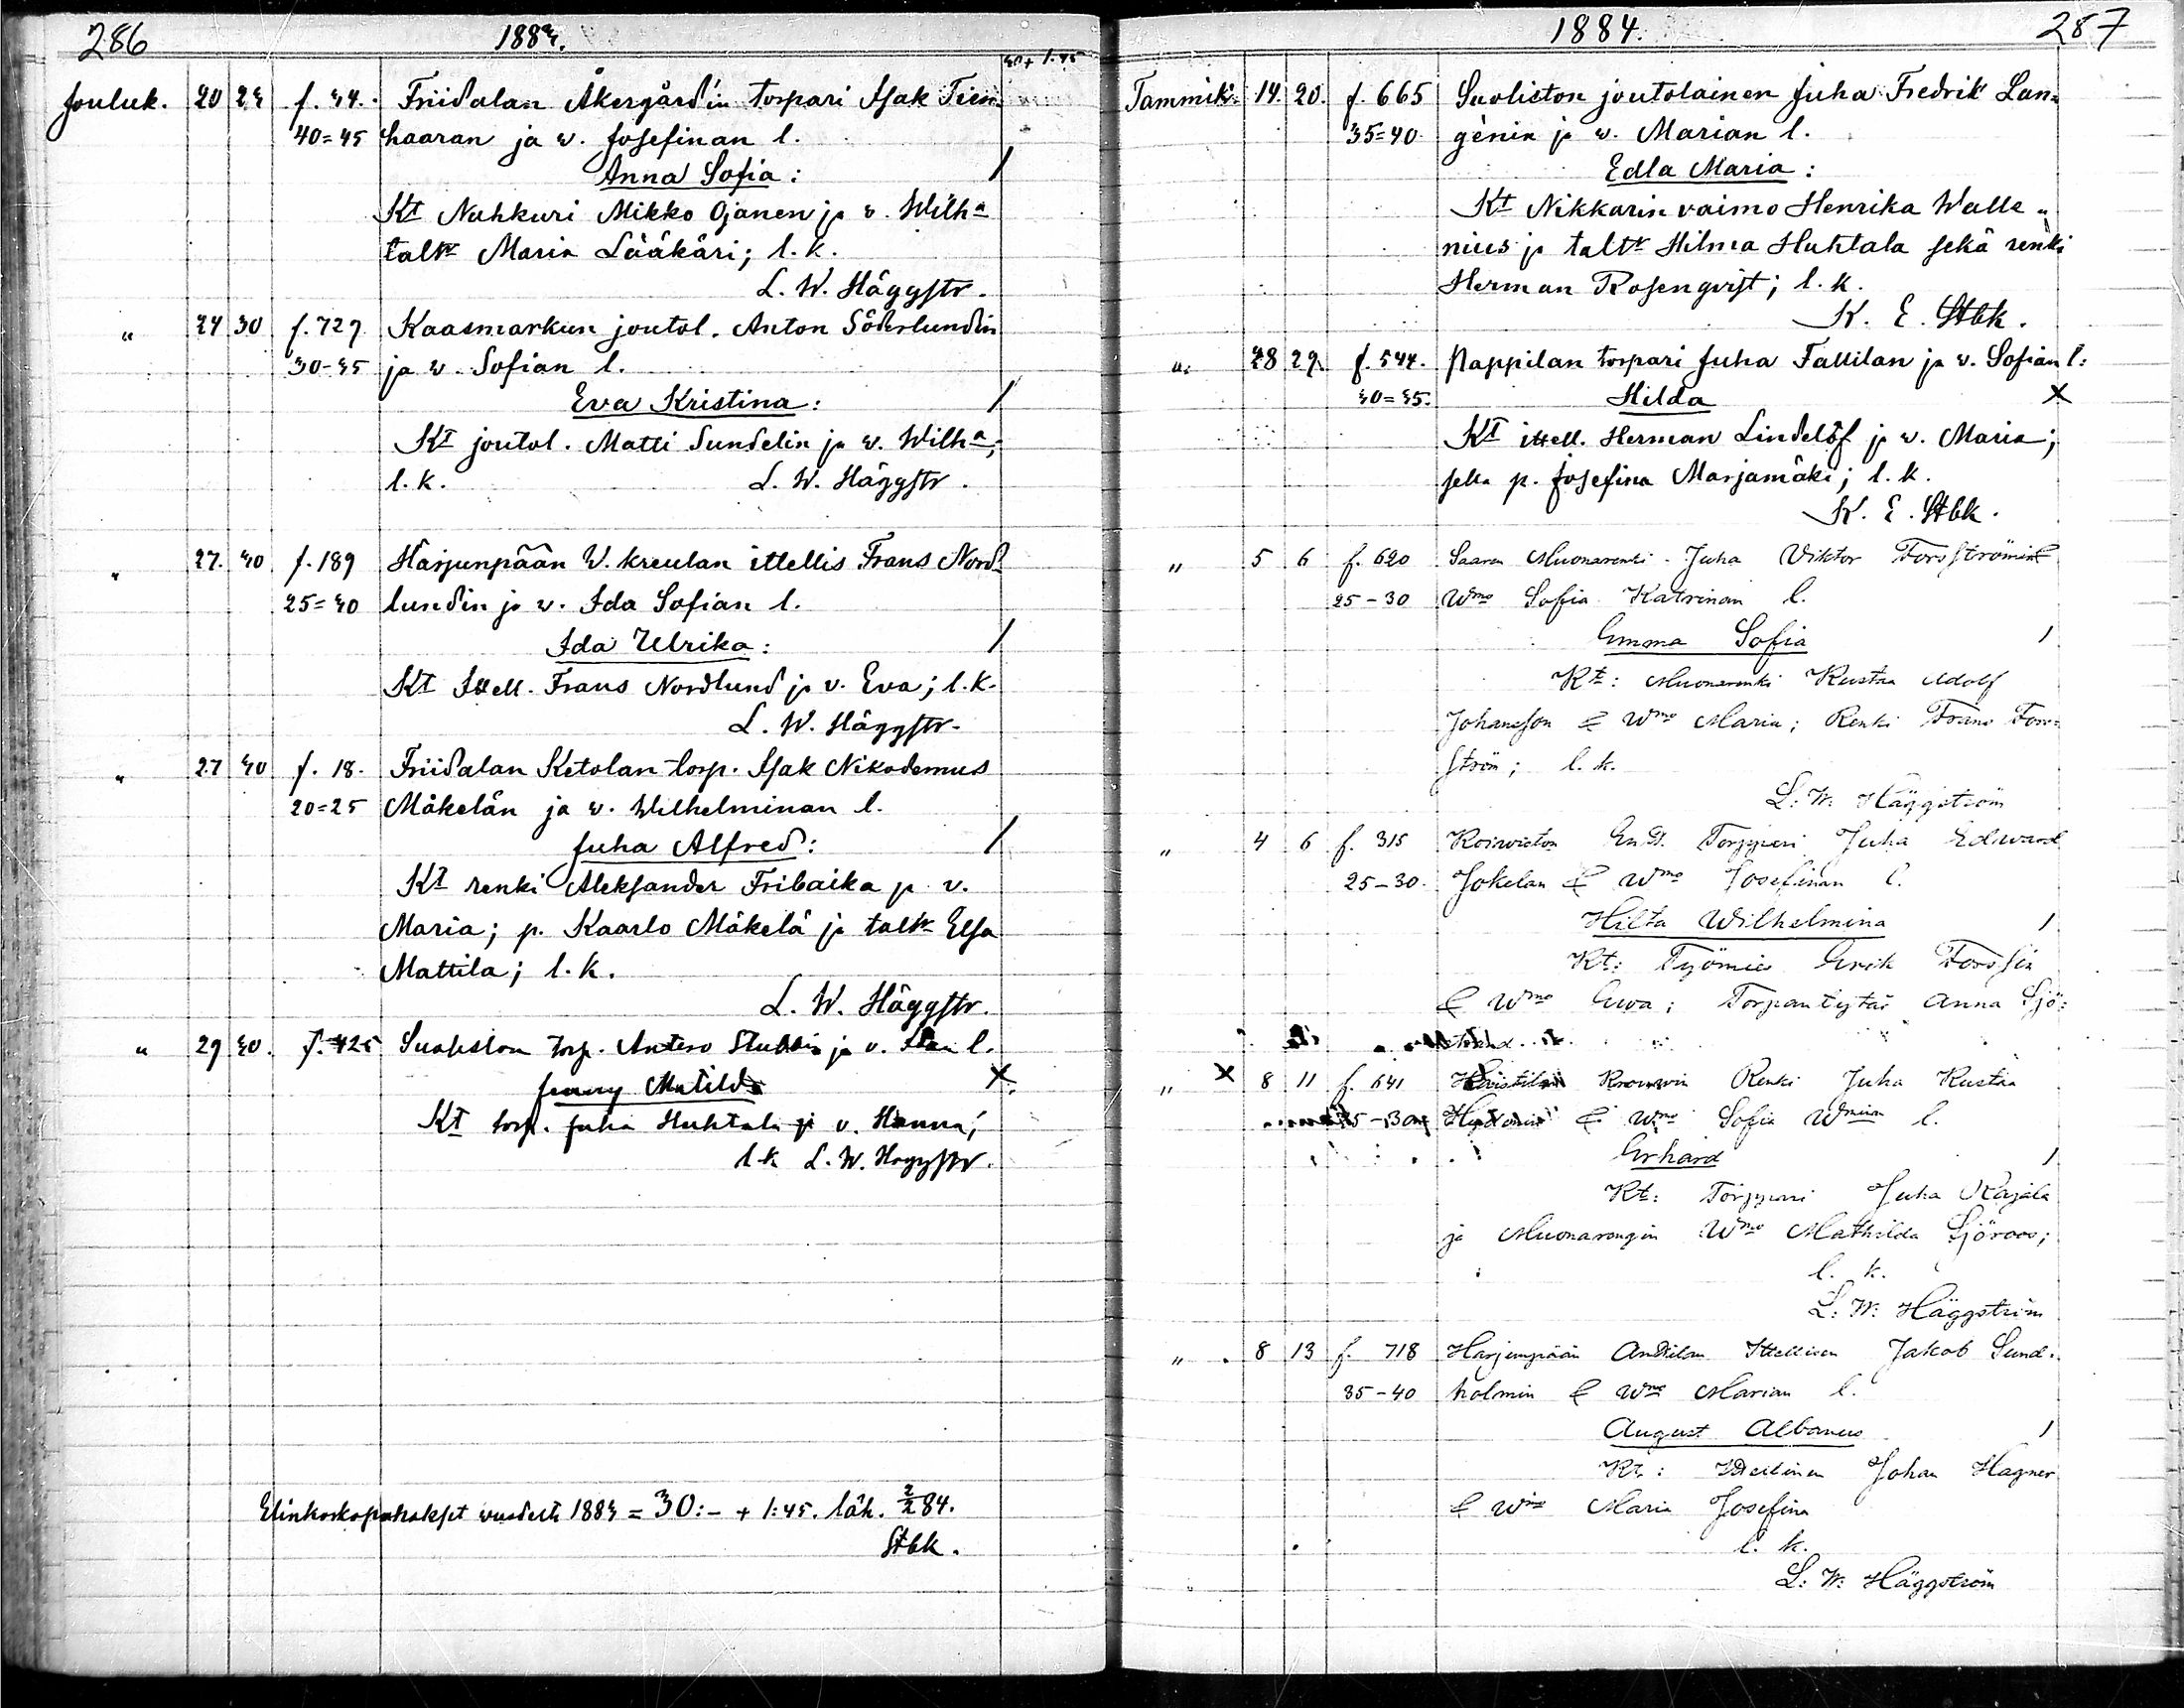 286
1883.
30+ 1.45
Jouluk. 20 23 f. 44. Friidalan Åkergård'in torpari Isak Tien=
40=45 haaran ja v. Josefinan l.
Anna Sofia: /
Kt Nahkuri Mikko Ojanen ja v. Wilha
taltr Maria Lääkäri; l. k.
L. W. Häggstr.
" 24 30 f. 729. Kaasmarkun joutol. Anton Söderlundin
30-35 ja v. Sofian l.
Eva Kristina: /
Kt joutol. Matti Sundelin ja v. Wilha;
l. k. L. W. Häggstr.
" 27. 30 f. 189 Harjunpään W. kreulan ittellis Frans Nord=
25=30 lundin ja v. Ida Sofian l.
Ida Ulrika: /
Kt Ittell. Frans Nordlund ja v. Eva; l. k.
L. W. Häggstr.
" 27 30 f. 18. Friidalan Ketolan torp. Isak Nikodemus
20=25 Mäkelän ja v. Wilhelminan l.
Juha Alfred: /
Kt renki Aleksander Fribaika ja v.
Maria; p. Kaarlo Mäkelä ja taltr Elsa
Mattila; l. k.
L. W. Häggstr.
" 29 30. f. 425 torp. Antero ja v. l.
Jenny Matilda X.
Kt torp. Juha Huhtala ja v. Hanna;
l. k L. W. Häggstr.
vuodelta 1883 = 30:- + 1:45. läh. 2/2 84.
Stbk.
1884.
287
Tammik. 14 20. f. 665 Suoliston joutolainen Juha Fredrik Lan=
35=40. génin ja v. Marian l.
Edla Maria:
Kt Nikkarin vaimo Henrika Walle=
nius ja taltr Hilma Huhtala sekä renki
Herman Rosenqvist; l. k.
K. E. Stbk.
" 28 29. f. 544. Pappilan torpari Juha Tallilan ja v. Sofian l:
30=35. Hilda X
Kt ittell. Herman Lindelöf ja v. Maria;
sekä p. Josefina Marjamäki; l. k.
K. E. Stbk.
" 5 6 f. 620 Saaren Muonarenki Juha Viktor Forsströmin &
25-30 Wmo Sofia Katrinan l.
Emma Sofia /
Kt: Muonarenki Kustaa Adolf
Johansson & Wmo Maria; Renki Frans Fors=
ström; l. k.
L. W. Häggström
" 4 6 f. 315 Koiviston Torppari Juha Edward
25-30. Jokelan & Wmo Josefinan l.
Hilta Wilhelmina /
Kt: Työmies Erik Forssen
& Wmo Ewa; Torpantytär Anna Sjö=
" X 8 11 f. 641 Renki Juha Kustaa
& Wmo Sofia Wminan l.
Erhard /
Kt: Torppari Juha Rajala
ja Muonarengin Wmo Mathilda Sjöroos;
l. k.
L. W. Häggström
" 8 13 f. 718 Harjunpään Anttilan Ittellisen Jakob Sund=
35-40 holmin & Wmo Marian l.
August Albanus /
Kt: Ittellinen Johan Hagner
& Wmo Maria Josefina
l. k.
L. W. Häggström